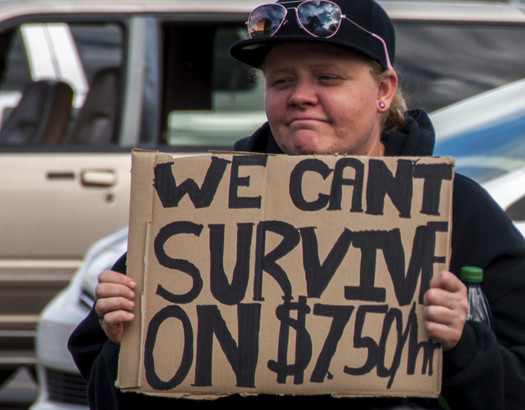 WE CANT
SURVIVE
ON $7.50/hr